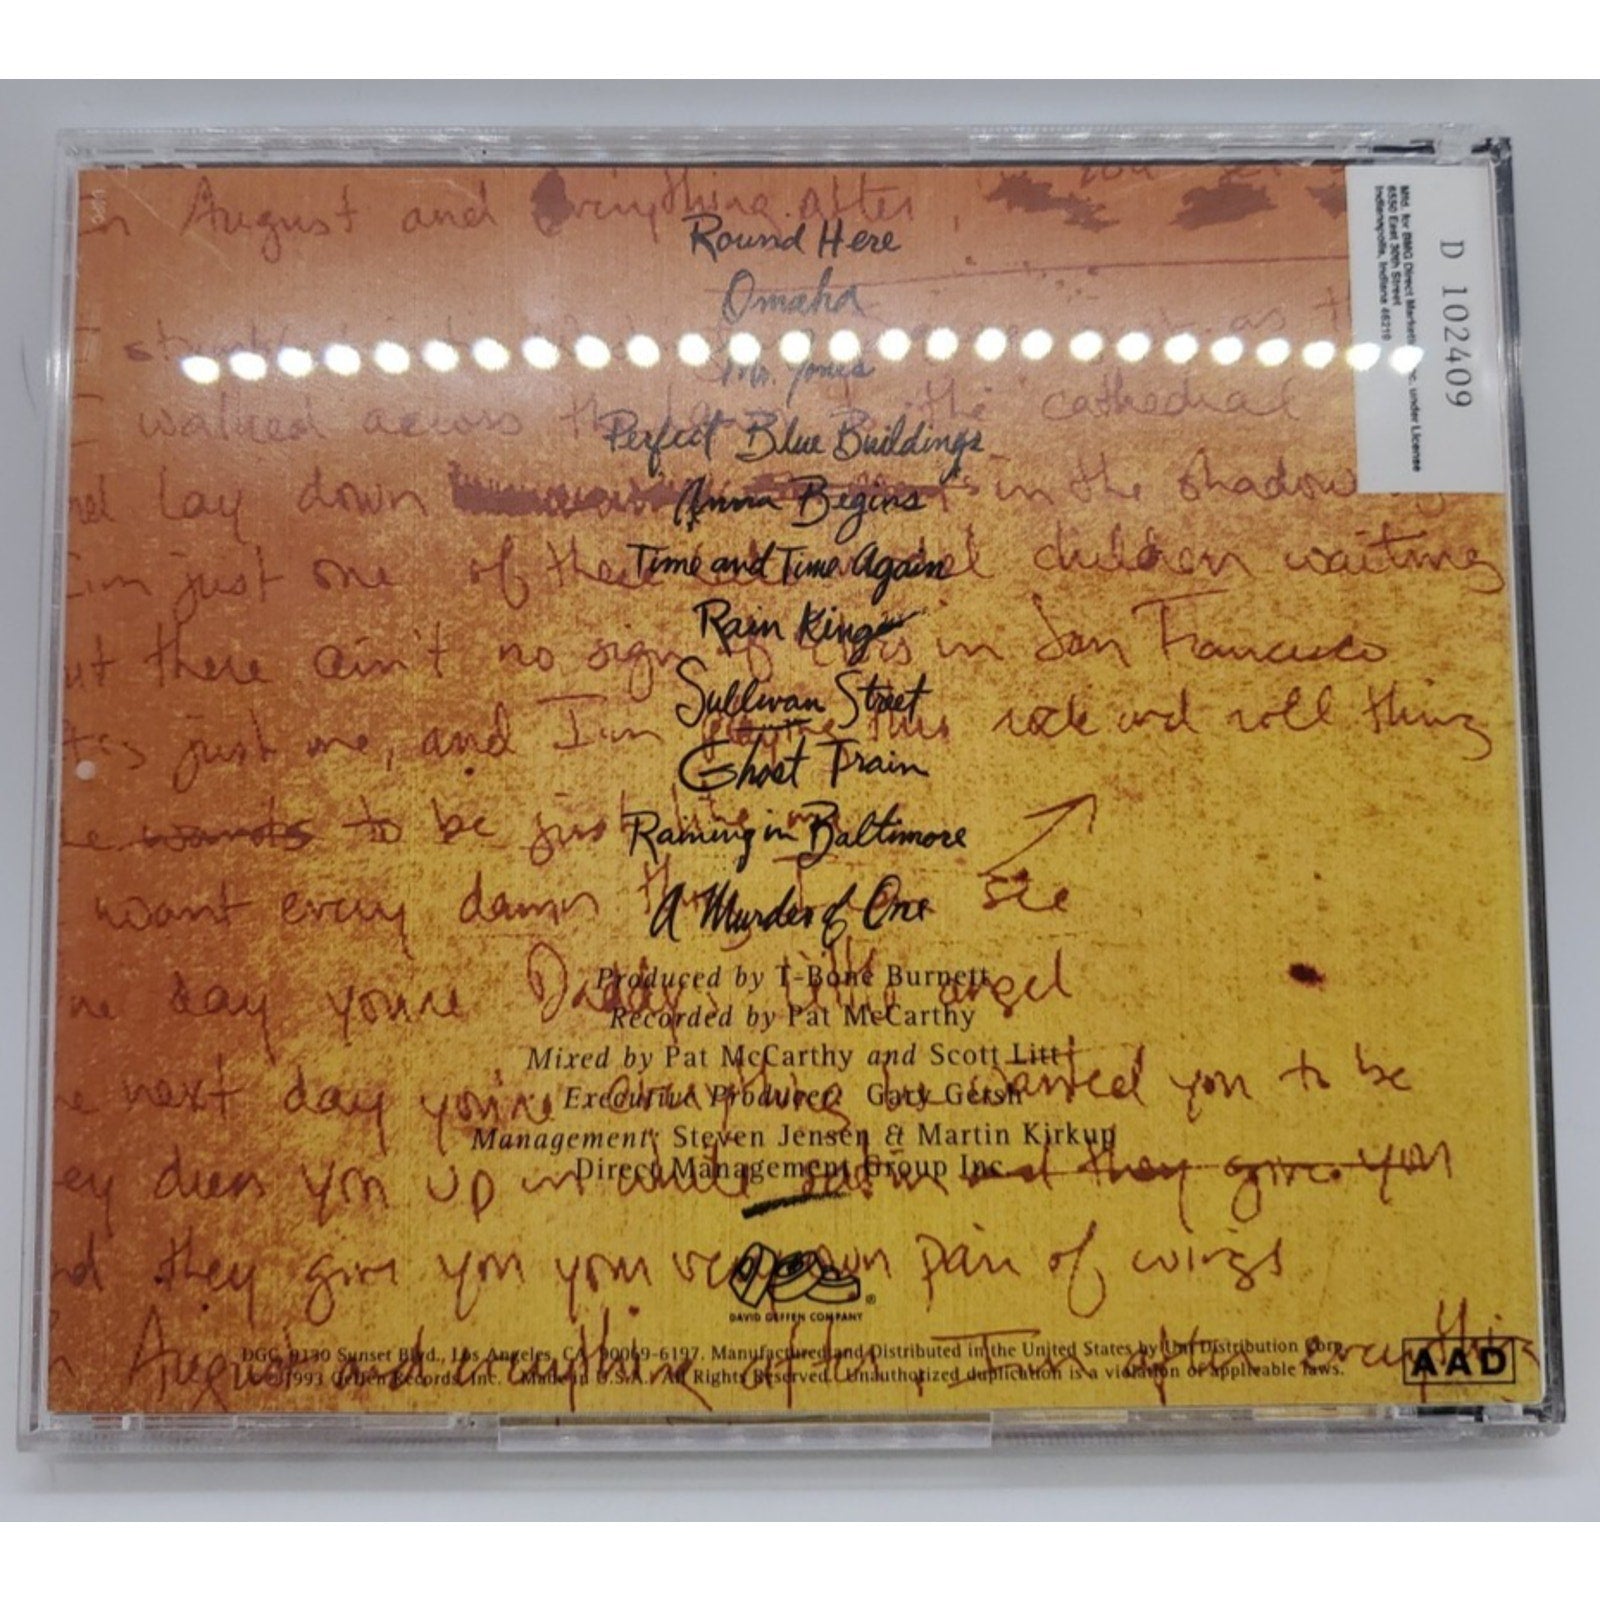 In August and Everything after,
Round Here
Omaha
Mr. Jones
walked across the cathedral
Perfect Blue Buildings
lay down in the shadow
Anna Begins
I'm just one of these children waiting
Time and Time Again
Rain King
there ain't no sign of in San Francisco
Sullivan Street
just me, and I'm this rock and roll thing
Ghost Train
wants to be just like me
Raining in Baltimore
want every damn thing see
A Murder of One
day you're Daddy's little angel
Produced by T-Bone Burnett
Recorded by Pat McCarthy
Mixed by Pat McCarthy and Scott Litt
next day you're everything he wanted you to be
Executive Producer: Gary Gersh
Management: Steven Jensen & Martin Kirkup
Direct Management Group Inc.
dress you up in white satin and they give you
they give you your very own pair of wings
DAVID GEFFEN COMPANY
®
August and everything after, I'm after everything
DGC, 9130 Sunset Blvd., Los Angeles, CA 90069-6197. Manufactured and Distributed in the United States by Uni Distribution Corp.
1993 Geffen Records, Inc. Made in U.S.A. All Rights Reserved. Unauthorized duplication is a violation of applicable laws.
AAD
D 102409
Mfd. for BMG Direct under License
6550 East 30th Street
Indianapolis, Indiana 46219